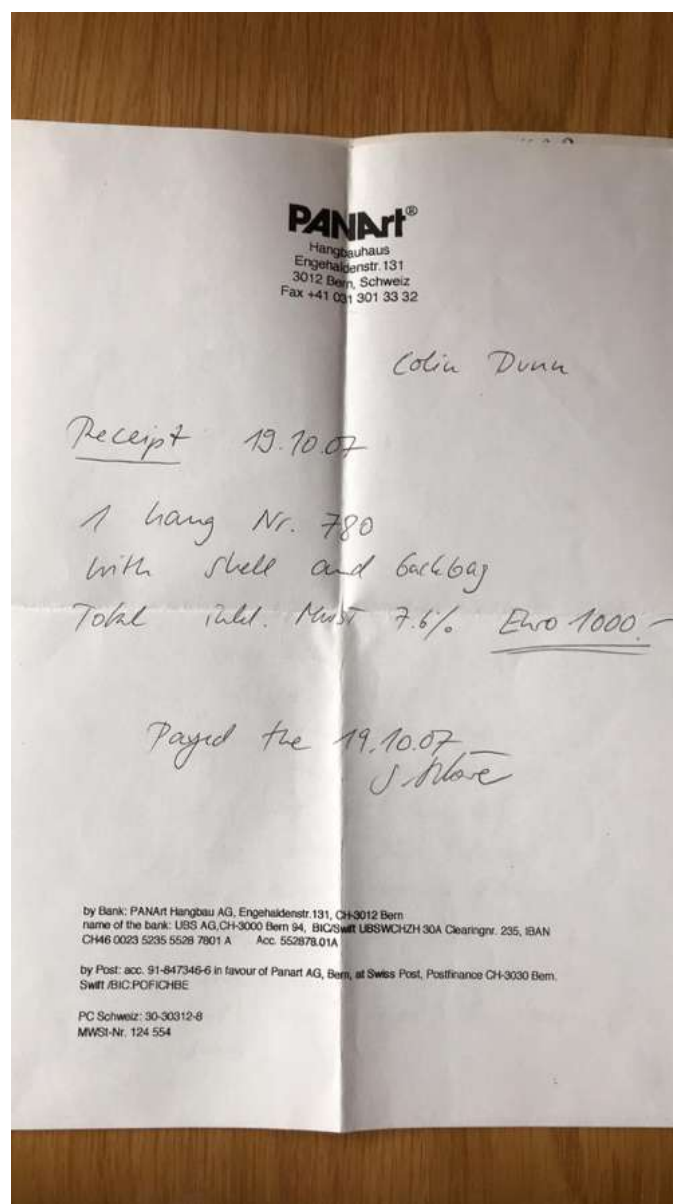 PANArt®
Hangbauhaus
Engehaldenstr.131
3012 Bern, Schweiz
Fax +41 031 301 33 32
Colin Dunn
Receipt 19.10.07
1 hang Nr. 780
with shell and backbag
Total inkl. MwST 7.6% Euro 1000.-
Payed the 19.10.07
by Bank: PANArt Hangbau AG, Engehaldenstr.131, CH-3012 Bern
name of the bank: UBS AG,CH-3000 Bern 94, BIC/Swift UBSWCHZH 30A Clearingnr. 235, IBAN
CH46 0023 5235 5528 7801 A Acc. 552878.01A
by Post: acc. 91-847346-6 in favour of Panart AG, Bern, at Swiss Post, Postfinance CH-3030 Bern.
Swift /BIC:POFICHBE
PC Schweiz: 30-30312-8
MWSt-Nr. 124 554